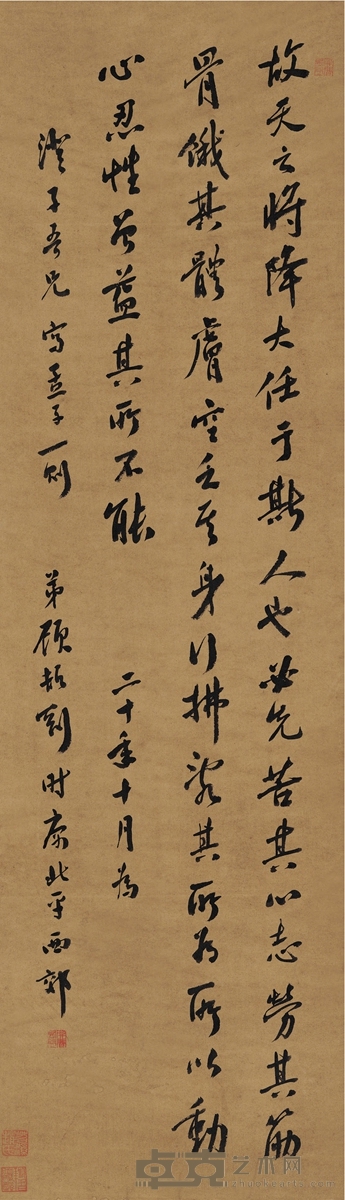 故天之將降大任于斯人也必先苦其心志勞其筋
骨餓其體膚空乏其身行拂亂其所為所以動
心忍性曾益其所不能
二十年十月為
澄子吾兄寫孟子一則
弟顧頡剛時寓北平西郊
卓克艺术网